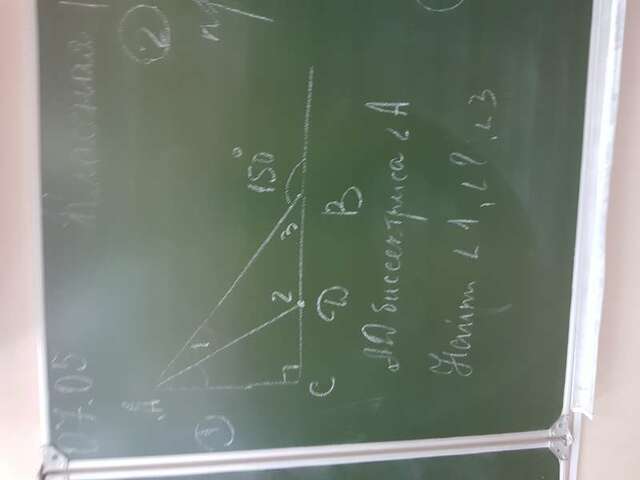 07.05 Классная
①
②
А
1
2
3
150°
С
D
В
AD биссектриса ∠A
Найти ∠1, ∠2, ∠3